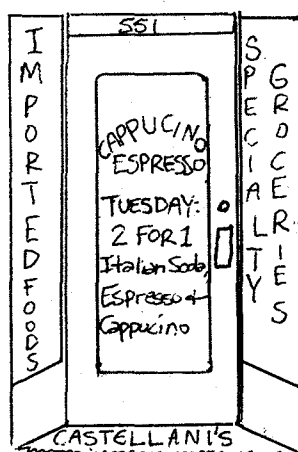 551
IMPORTED FOODS
CAPPUCINO
ESPRESSO
TUESDAY:
2 FOR 1
Italian Soda,
Espresso &
Cappucino
SPECIALTY
GROCERIES
CASTELLANI'S